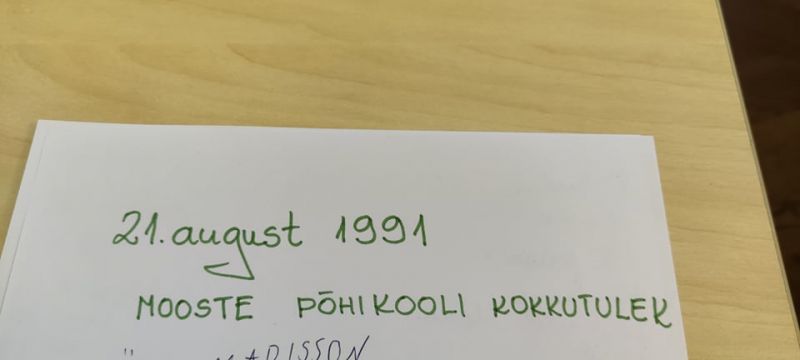 21. august 1991
MOOSTE PÕHIKOOLI KOKKUTULEK
MADISSON